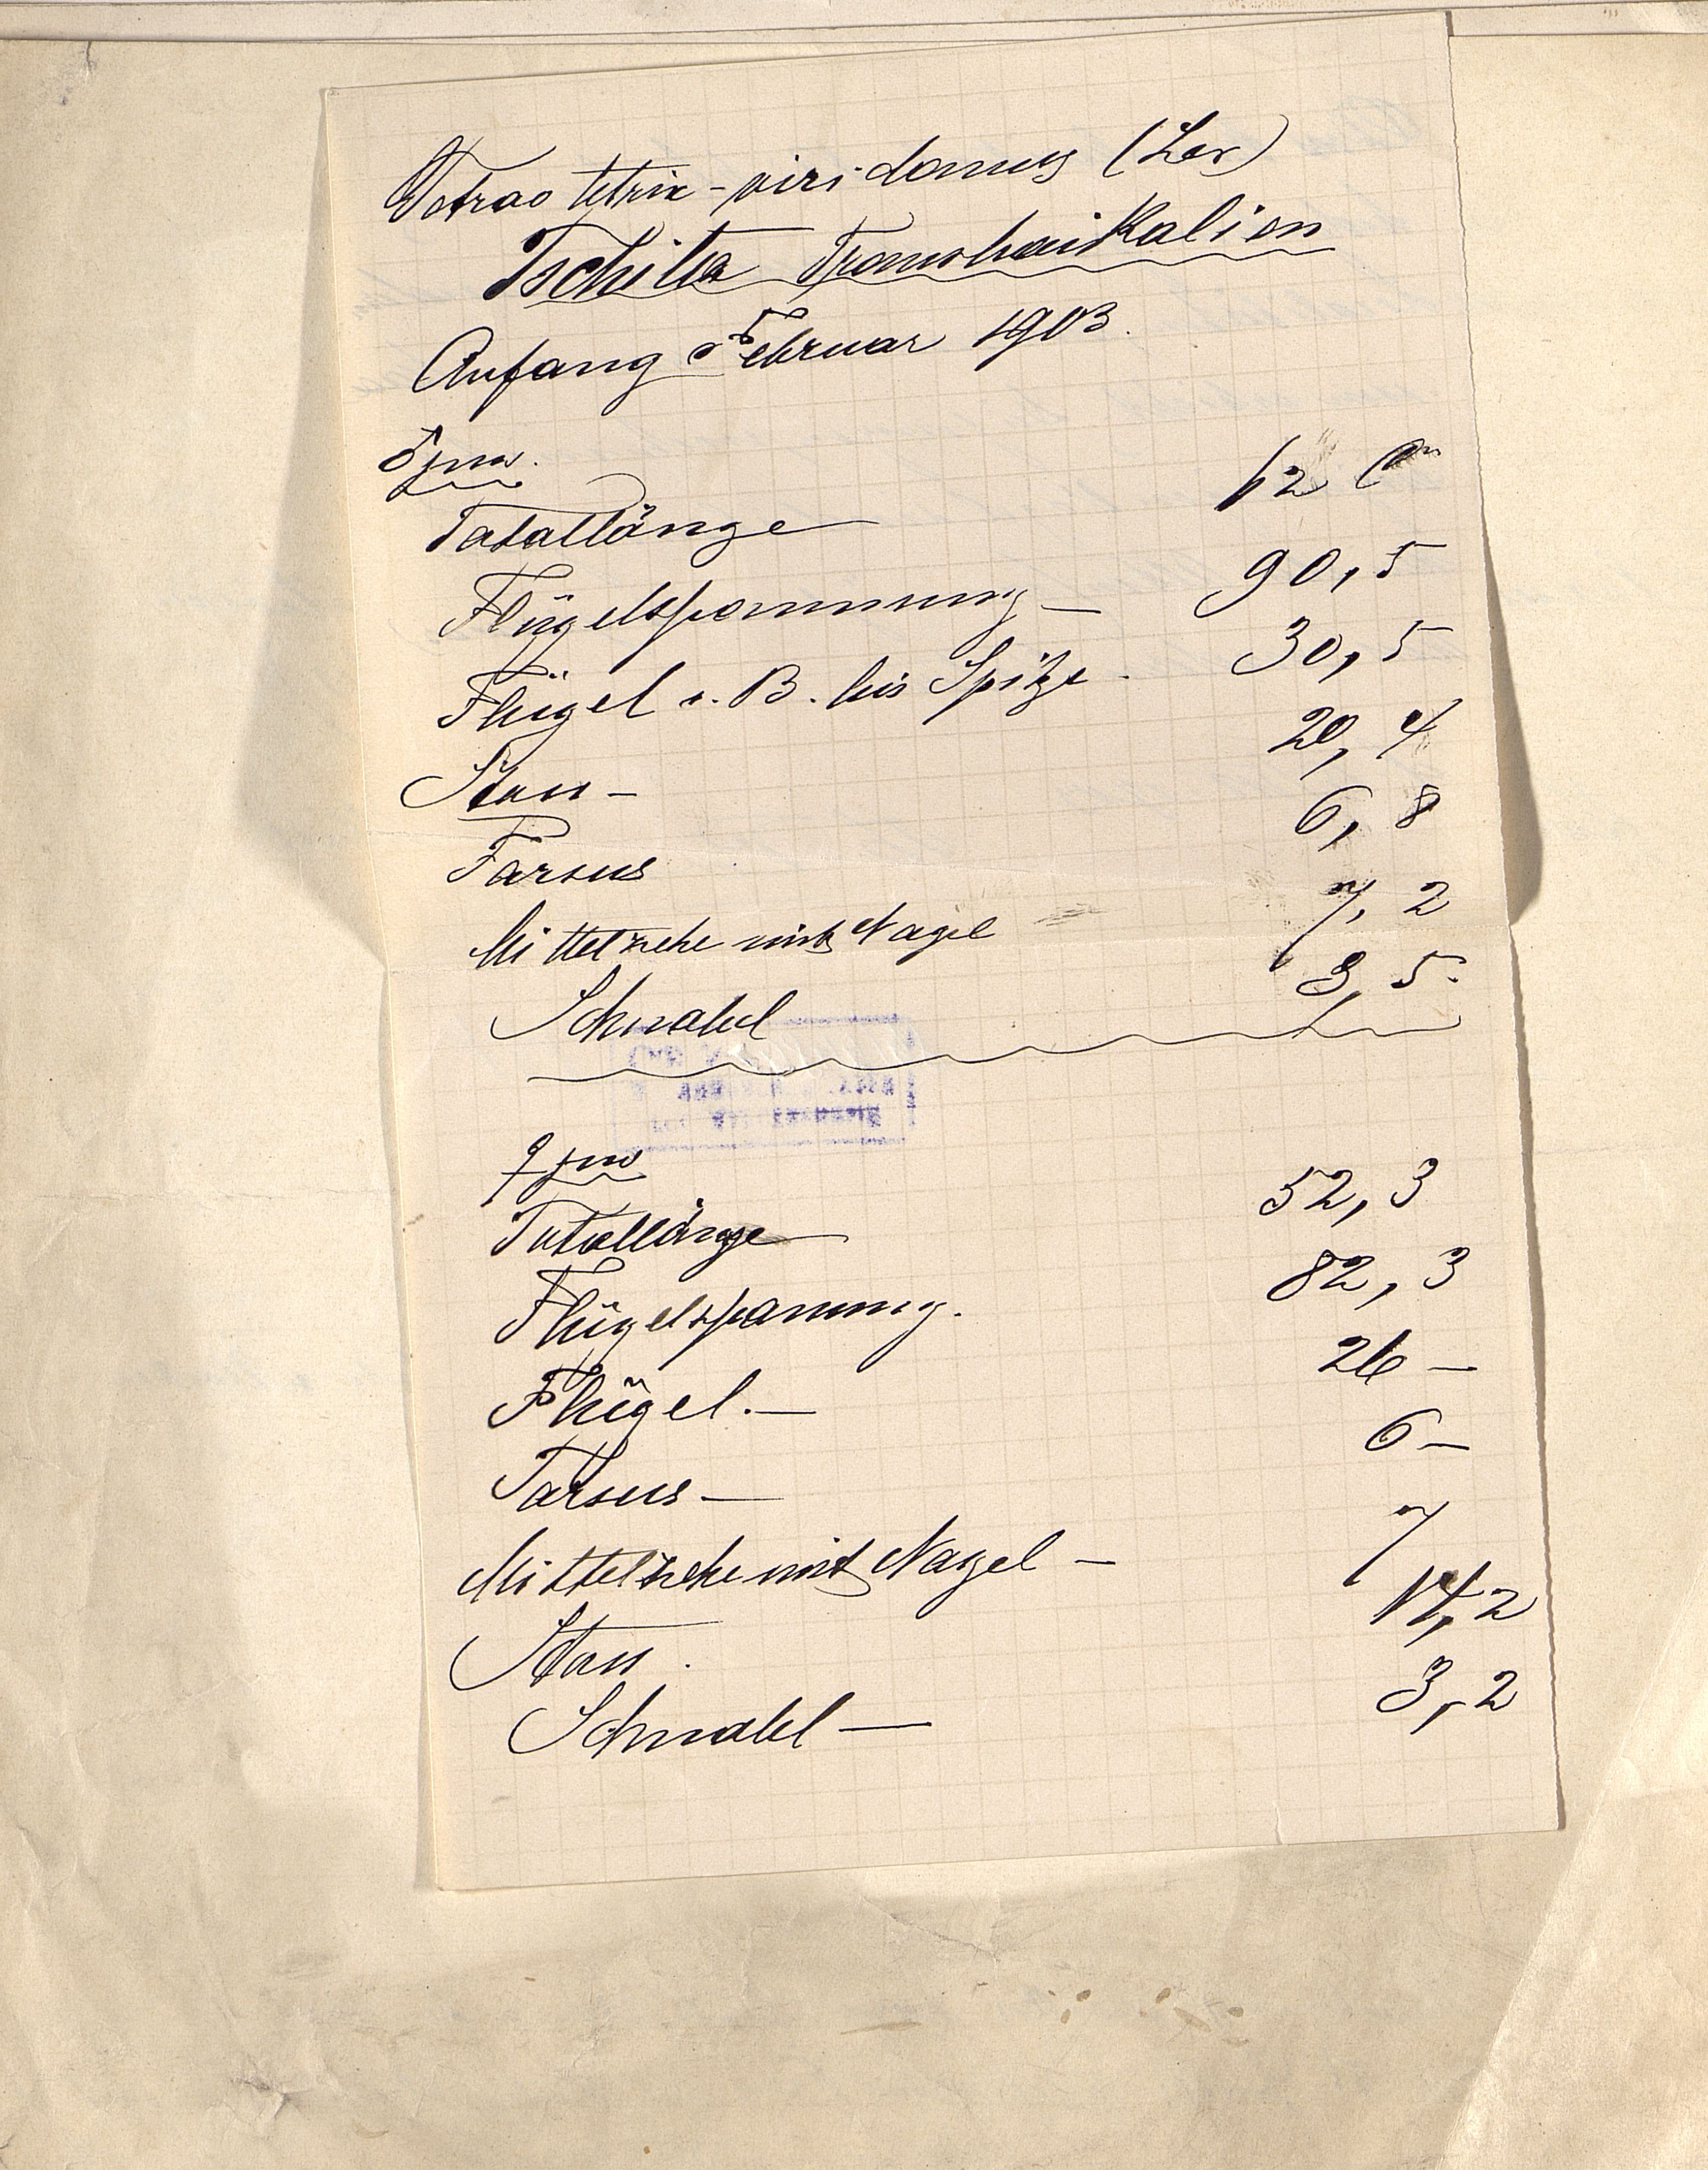 Tetrao tetrix-viridanus (Lor)
Tschita Transbaikalien
Anfang Februar 1903.
♂ juv.
Totallänge 62 Cm
Flügelspannung — 90,5
Flügel v. B. bis Spitze. 30,5
Stoss — 20,4
Tarsus 6,8
Mittelzehe mit Nagel 7,2
Schnabel 3,5
♀ juv
Totallänge 52,3
Flügelspannung. 82,3
Flügel. — 26 —
Tarsus — 6 —
Mittelzehe mit Nagel — 7
Stoss. 14,2
Schnabel — 3,2